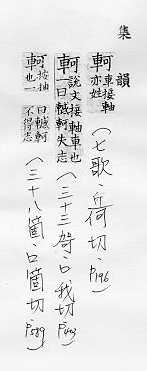 集韻
軻 車接軸亦姓 (七歌、丘何切、P196)
軻 說文接軸車也一曰轗軻失志 (三十三哿、口我切、P403)
軻 接軸車也一曰轗軻不得志 (三十八箇、口箇切、P589)